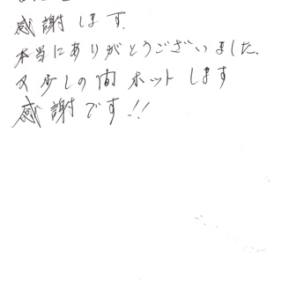 感謝します.
本当にありがとうございました.
又少しの間ホットします
感謝です!!